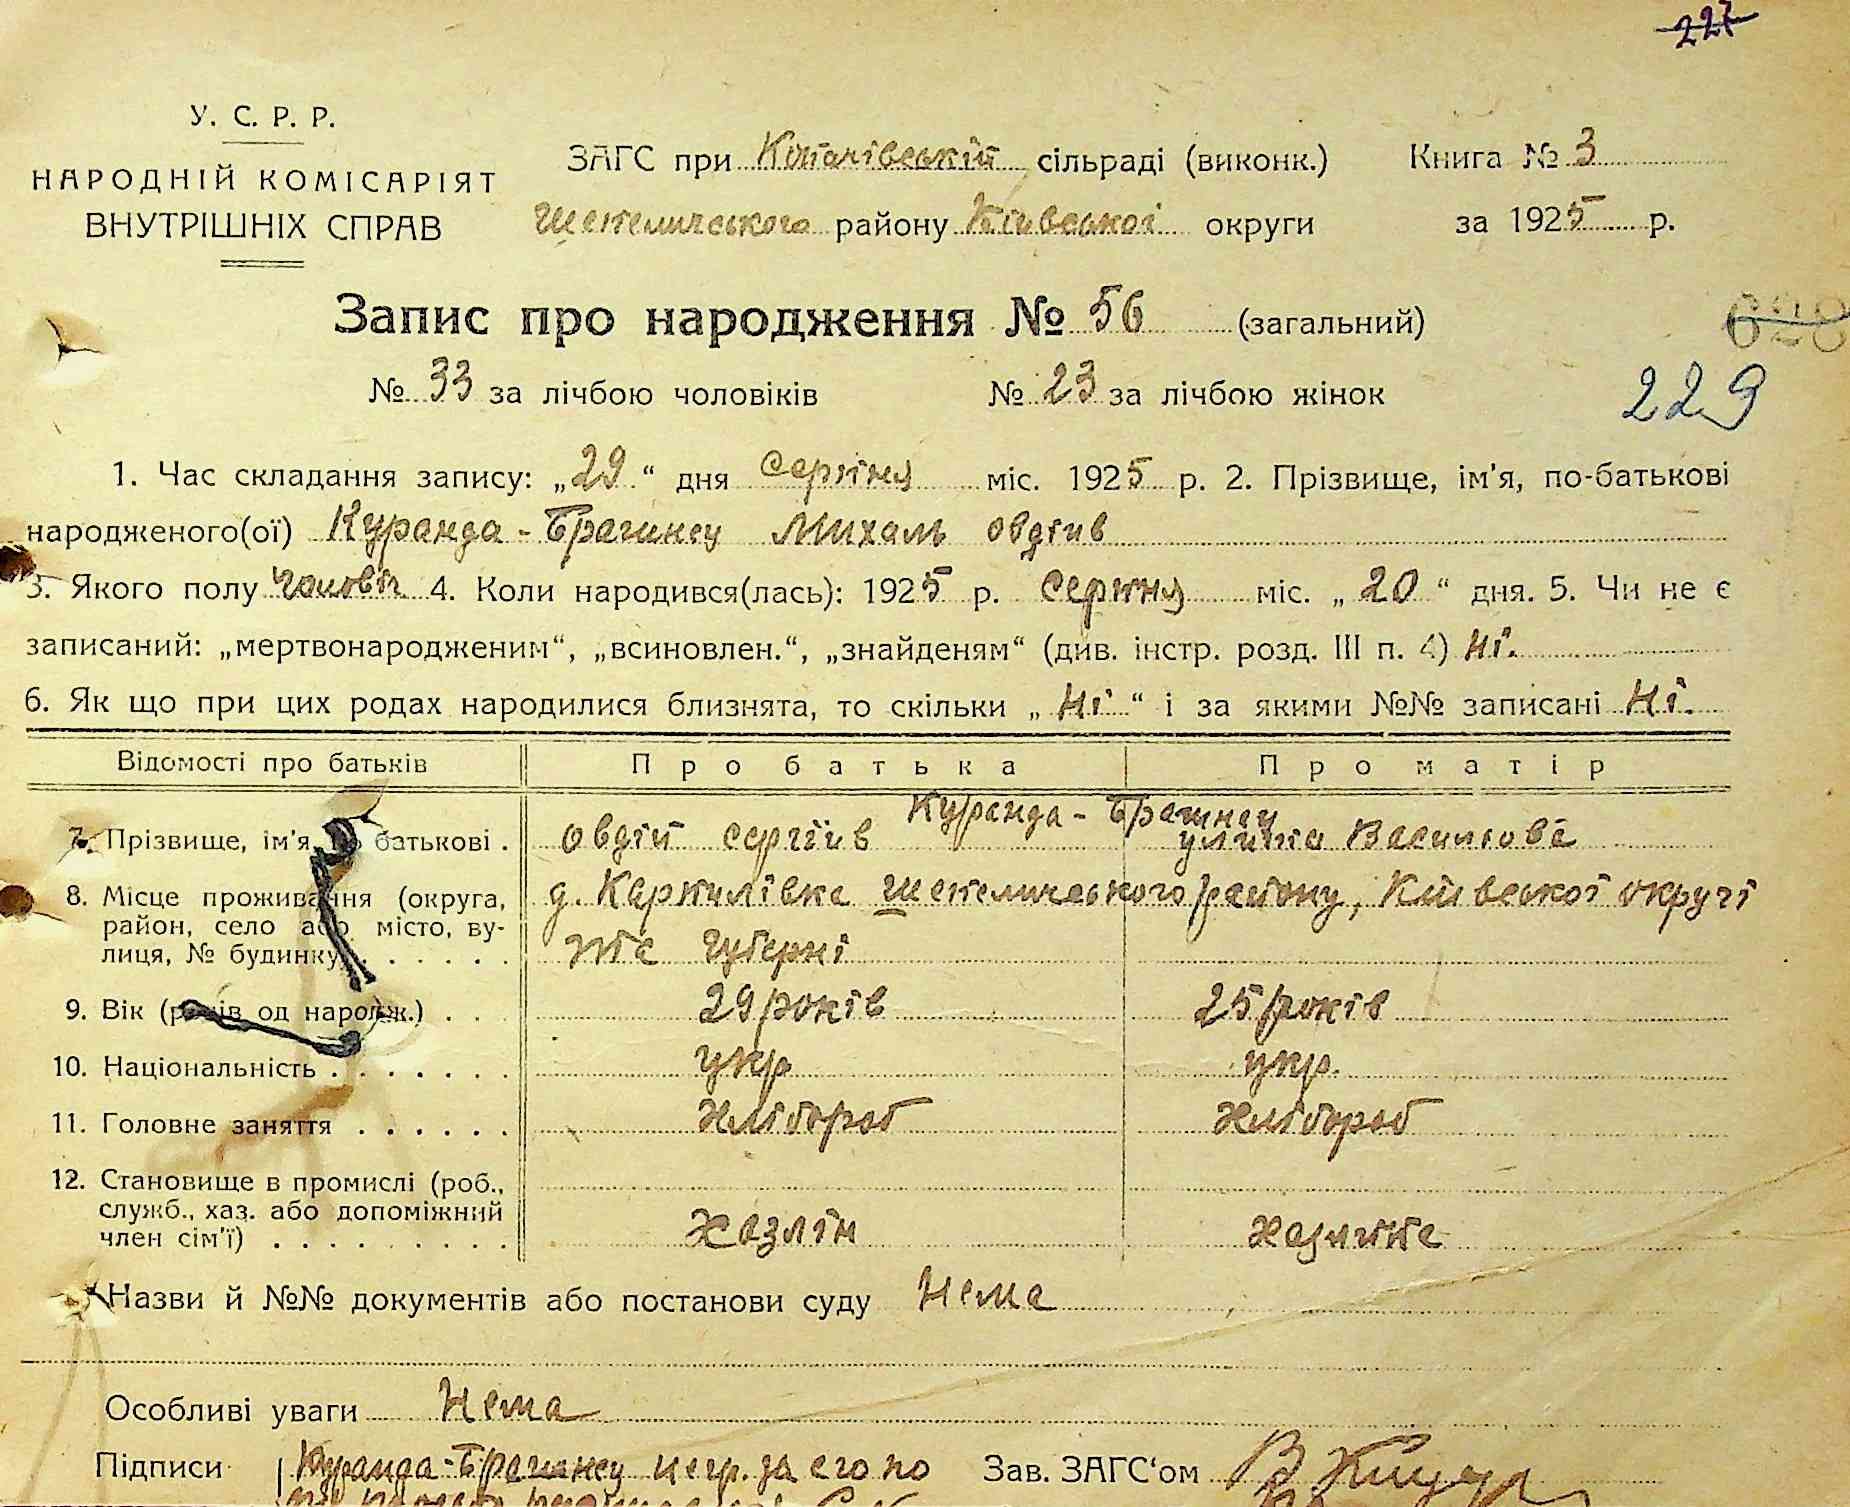 227
У. С. Р. Р.
НАРОДНІЙ КОМІСАРІЯТ
ВНУТРІШНІХ СПРАВ
ЗАГС при Копачівській сільраді (виконк.) Книга № 3
Шепелицького району Київської округи за 1925 р.
Запис про народження № 56 (загальний)
№ 33 за лічбою чоловіків № 23 за лічбою жінок
229
1. Час складання запису: „29“ дня серпня міс. 1925 р. 2. Прізвище, ім'я, по-батькові
народженого(ої) Куранда-Брагинец Михаль Овдіїв
3. Якого полу чоловік 4. Коли народився(лась): 1925 р. серпня міс. „20“ дня. 5. Чи не є
записаний: „мертвонародженим“, „всиновлен.“, „знайденям“ (див. інстр. розд. III п. 4) Ні.
6. Як що при цих родах народилися близнята, то скільки „Ні“ і за якими №№ записані Ні.
Відомості про батьків Про батька Про матір
Куранда-Брагинец
7. Прізвище, ім'я, по батькові . Овдій Сергіїв Улита Василіова
8. Місце проживання (округа, район, село або місто, вулиця, № будинку) д. Карпилівка Шепелицького району, Київської округи
губерні
9. Вік (років од народж.) . . 29 років 25 років
10. Національність . . . . . . . укр укр.
11. Головне заняття . . . . . . Хлібороб Хлібороб
12. Становище в промислі (роб.,
служб., хаз. або допоміжний
член сім'ї) . . . . . . . . . Хазяїн Хазяйка
Назви й №№ документів або постанови суду Нема
Особливі уваги Нема
Підписи Куранда-Брагинец негр. за его по Зав. ЗАГС'ом